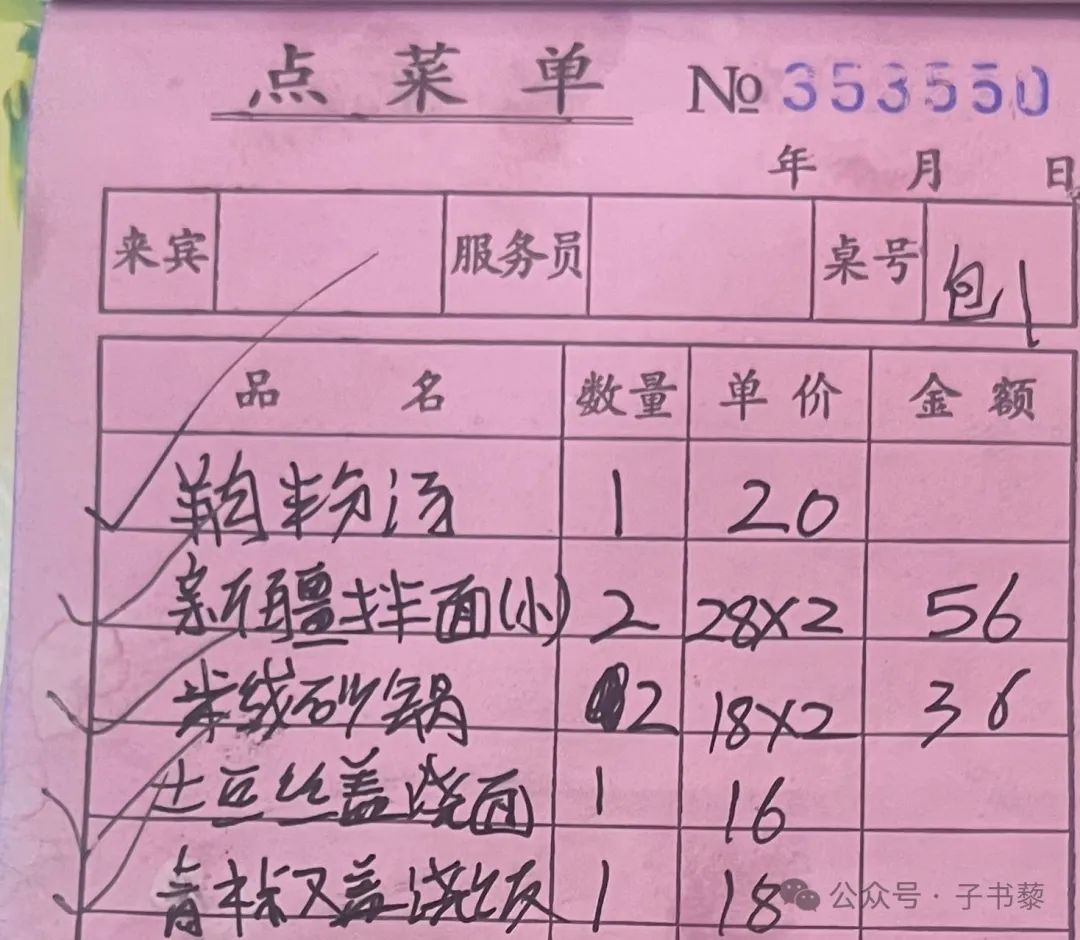 点菜单 № 353550
年 月 日
来宾 服务员 桌号 包1
品名 数量 单价 金额
羊肉粉汤 1 20
新疆拌面(小) 2 28×2 56
米线砂锅 2 18×2 36
土豆丝盖浇面 1 16
青椒又盖浇饭 1 18
公众号·子书藜